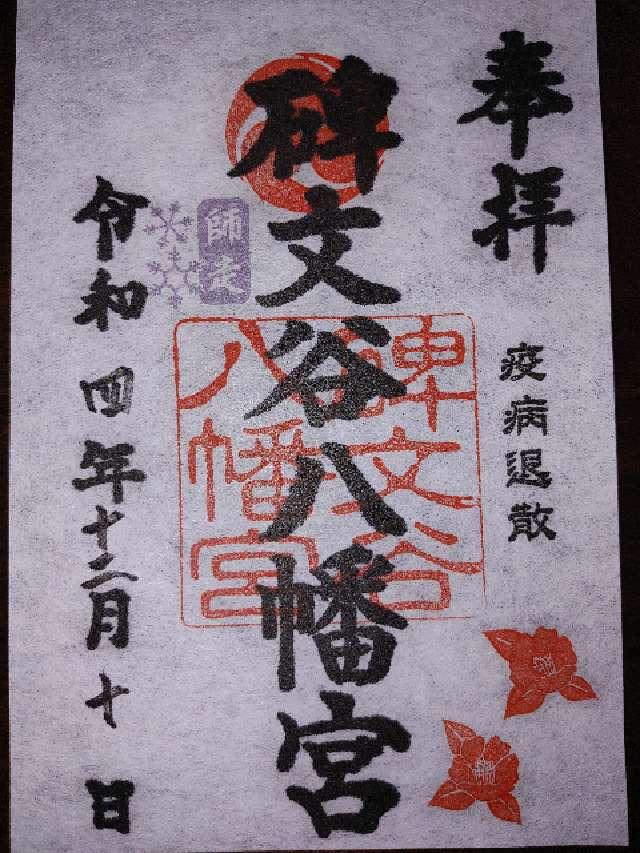 奉拝
疫病退散
碑文谷八幡宮
碑文谷
八幡宮
師走
令和四年十二月十日